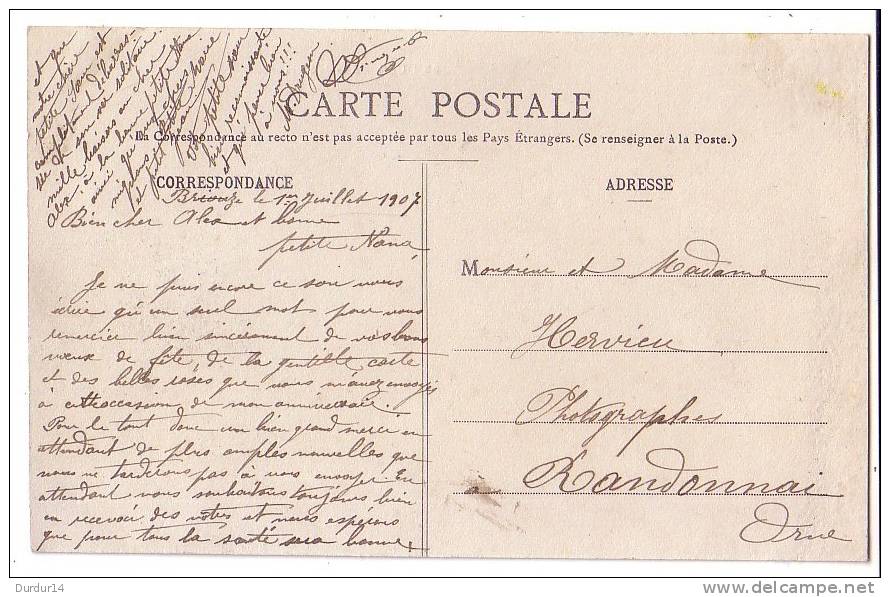 CARTE POSTALE
La Correspondance au recto n'est pas acceptée par tous les Pays Étrangers. (Se renseigner à la Poste.)
CORRESPONDANCE
Briouze le 1er Juillet 1907
Bien cher Alex et bonne
petite Nana,
Je ne puis encore ce soir vous
écrire qu'un seul mot pour vous
remercier bien sincèrement de vos bons
vœux de fête, de la gentille carte
et des belles roses que vous m'avez envoyés
à cette occasion de mon anniversaire.
Pour le tout donc un bien grand merci en
attendant de plus amples nouvelles que
nous ne tarderons pas à vous envoyer. En
attendant nous souhaitons toujours bien
en recevoir des vôtres et nous espérons
que pour tous la santé sera bonne,
et que
notre chère
petite est
complètement
mille baisers au cher
Alex, à la bonne petite Nana
ainsi qu'aux
mignons
et petit
petite sœur
bien reconnaissante
et qui pense bien
à vous!!!
ADRESSE
Monsieur et Madame
Hervieu
Photographes
à Randonnai
Orne
Durdur14
www.delcampe.net